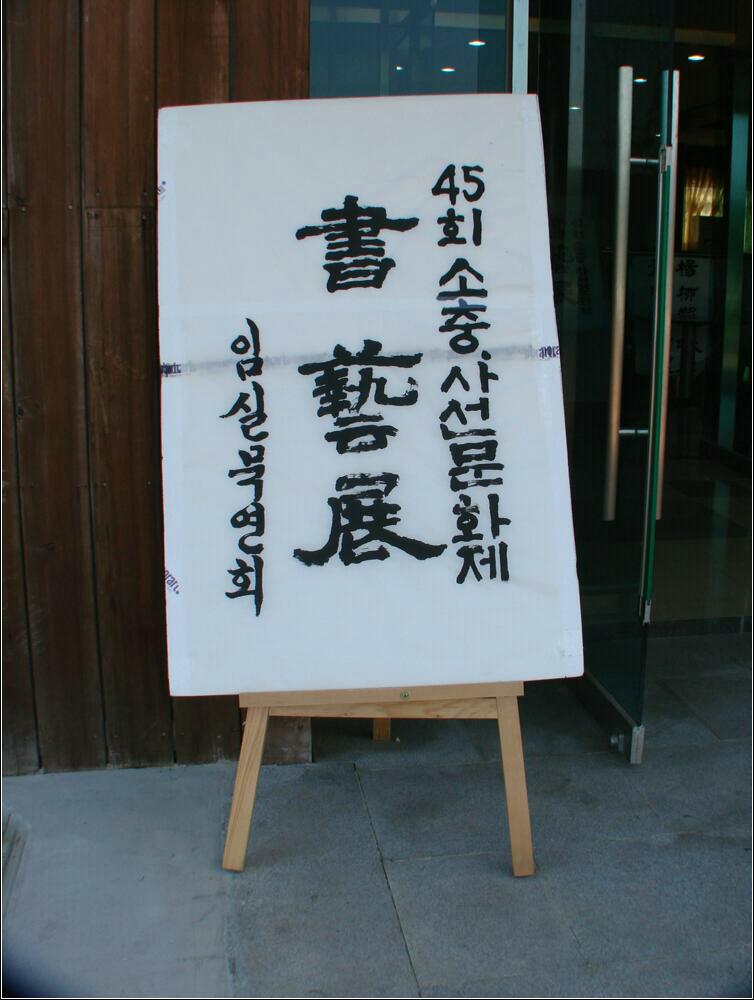 45회 소충.사선문화제
書藝展
임실묵연회